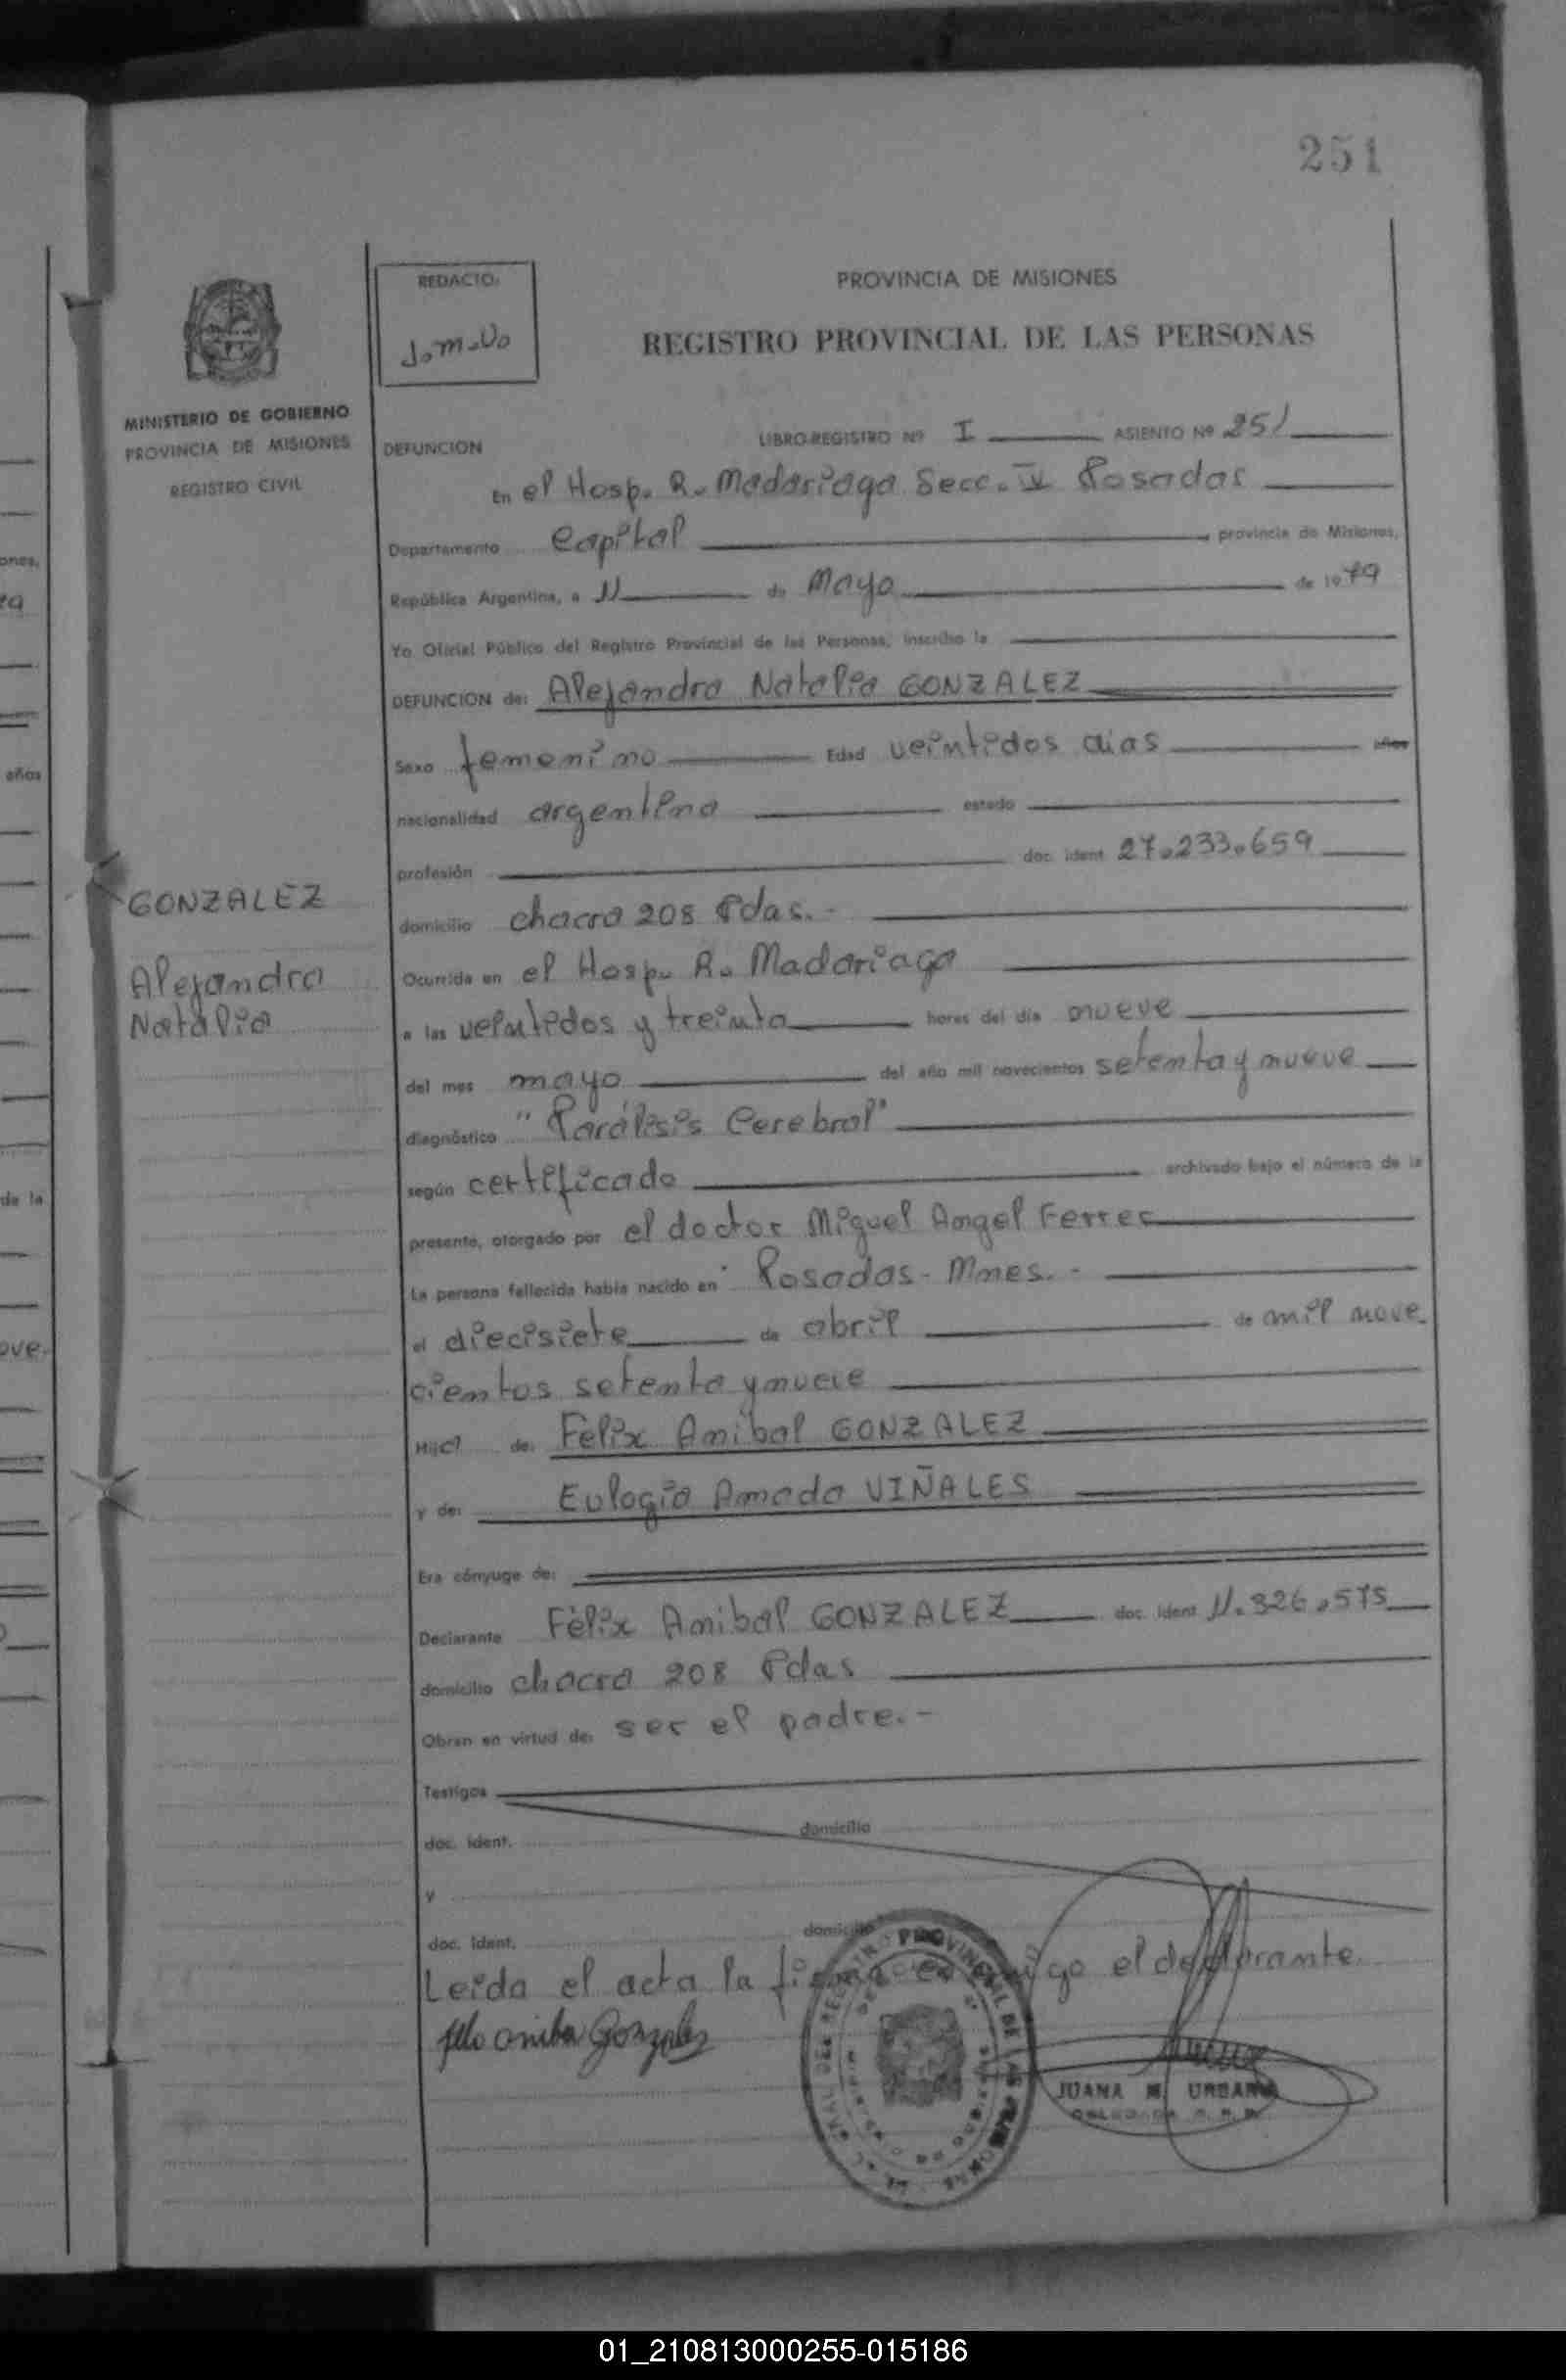 251
REDACTO:
J.M.V.
PROVINCIA DE MISIONES
REGISTRO PROVINCIAL DE LAS PERSONAS
MINISTERIO DE GOBIERNO
PROVINCIA DE MISIONES
REGISTRO CIVIL
DEFUNCION
LIBRO-REGISTRO Nº I ASIENTO Nº 251
En el Hosp. R. Madariaga Secc. Posadas
Departamento Capital provincia de Misiones,
República Argentina, a 11 de Mayo de 1979
Yo Oficial Público del Registro Provincial de las Personas, inscribo la
DEFUNCION de: Alejandra Natalia GONZALEZ
Sexo femenino Edad veintidos dias años
nacionalidad argentina estado
profesión doc. ident. 27.233.659
GONZALEZ
Alejandra
Natalia
domicilio chacra 208 Pdas.-
Ocurrida en el Hosp. R. Madariaga
a las veintidos y treinta horas del día nueve
del mes mayo del año mil novecientos setenta y nueve
diagnóstico "Parálisis Cerebral"
según certificado archivado bajo el número de la
presente, otorgado por el doctor Miguel Angel Ferrer
La persona fallecida había nacido en Posadas - Mnes. -
el diecisiete de abril de mil nove
cientos setenta y nueve
Hija de: Felix Anibal GONZALEZ
y de: Eulogia Amada VIÑALES
Era cónyuge de:
Declarante Félix Anibal GONZALEZ doc. ident. 11.326.575
domicilio chacra 208 Pdas
Obran en virtud de: ser el padre.-
Testigos
doc. ident. domicilio
y
doc. ident. domicilio
Leida el acta la firma el declarante
Gonzales
JUANA M. URBAN
ones,
79
años
de la
ove.
01_210813000255-015186